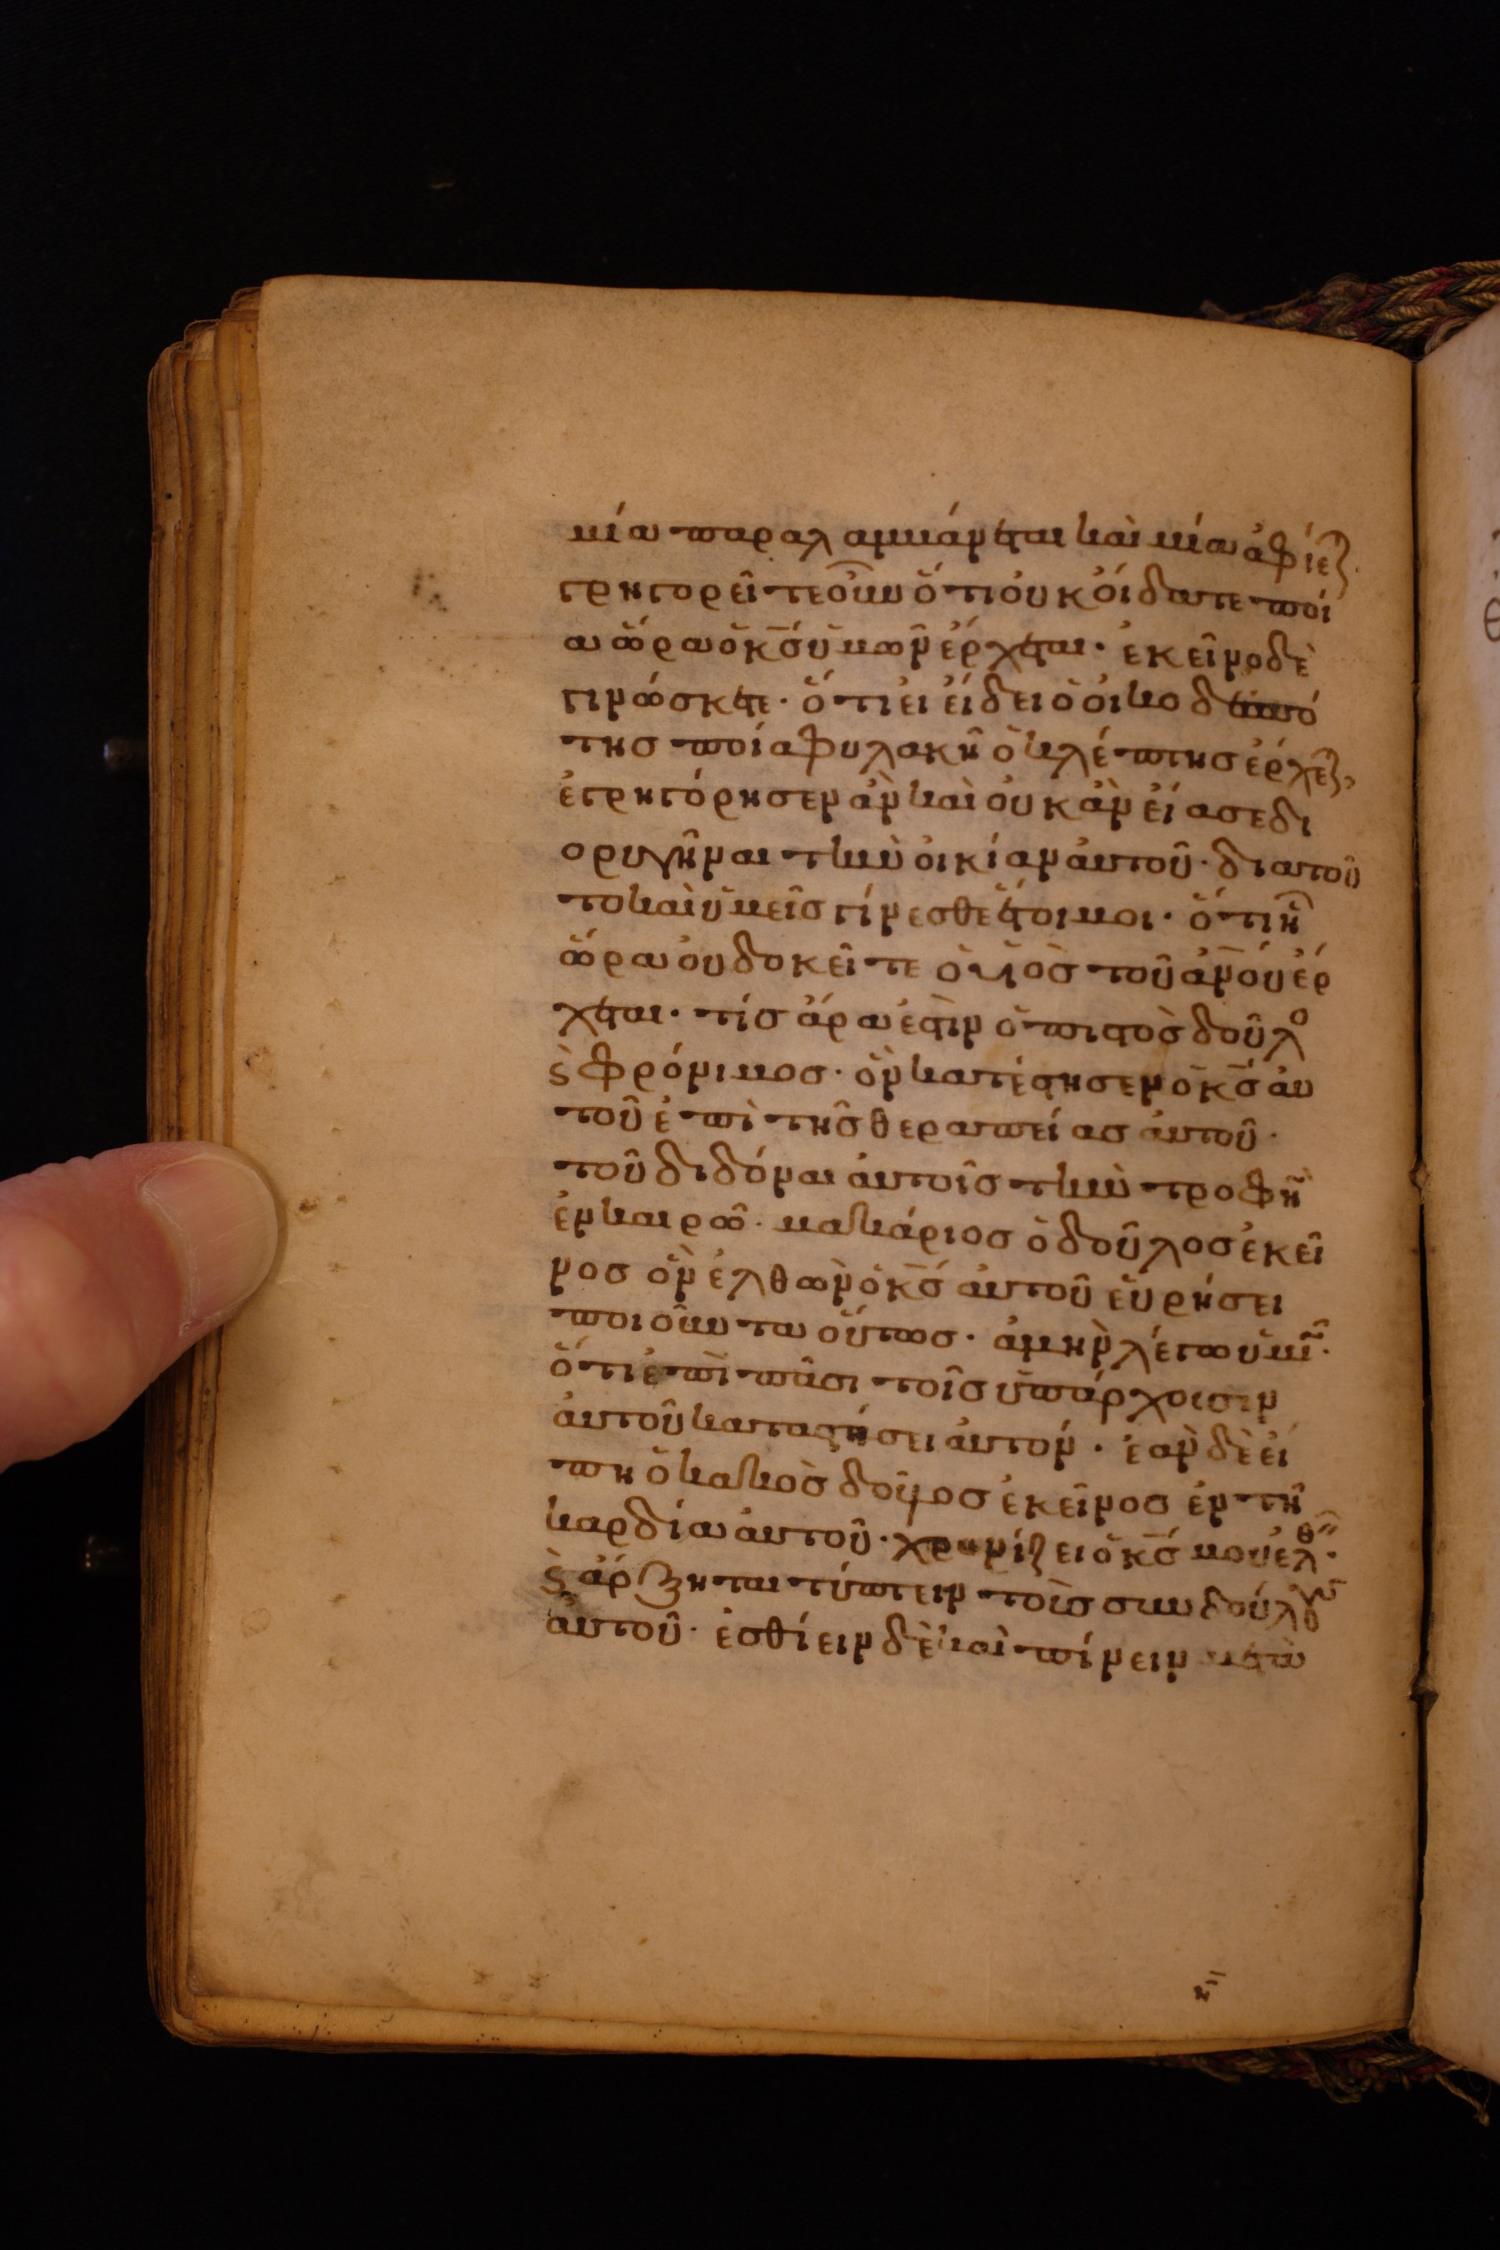 μία παραλαμμβάνεται καὶ μία ἀφίεται
γρηγορεῖτε οὖν ὅτι οὐκ οἴδατε ποί
α ὥρα ὁ κ̅ς̅ ὑμῶν ἔρχεται· ἐκεῖνο δὲ
γινώσκετε· ὅτι εἰ εἴδει ὁ οἰκοδεσπό
της ποία φυλακῆ ὁ κλέπτης ἔρχεται,
ἐγρηγόρησεν ἂν καὶ οὐκ ἂν εἴασε δι
ορυγῆναι τὴν οἰκίαν αὐτοῦ· διατοῦ
το καὶ ὑμεῖς γίνεσθε ἕτοιμοι· ὅτι ἧ
ὥρα οὐ δοκεῖτε ὁ υἱὸς τοῦ ἀν̅ο̅υ̅ ἔρ
χεται· τίς ἄρα ἐστὶν ὁ πιστὸς δοῦλο
ϛ̀ φρόνιμος· ὃν κατέστησεν ὁ κ̅ς̅ αὐ
τοῦ ἐπὶ τῆς θεραπείας αὐτοῦ·
τοῦ διδόναι αὐτοῖς τὴν τροφὴν
ἐν καιρῶ· μακάριος ὁ δοῦλος ἐκεῖ
νος ὃν ἐλθὼν ὁ κ̅ς̅ αὐτοῦ εὑρήσει
ποιοῦντα οὕτως· ἀμὴν λέγω ὑμῖν·
ὅτι ἐπὶ πᾶσι τοῖς ὑπάρχουσιν
αὐτοῦ καταστήσει αὐτόν· ἐὰν δὲ εἴ
πη ὁ κακὸς δοῦλος ἐκεῖνος ἐν τῆ
καρδία αὐτοῦ· χρονίζει ὁ κ̅ς̅ μου ἐλθ·
ϛ̀ ἄρξηται τύπτειν τοὺς συνδούλους
αὐτοῦ· ἐσθίειν δὲ καὶ πίνειν μετὰ